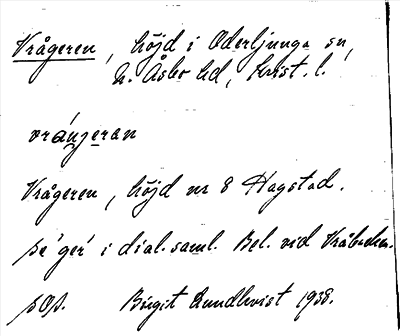 Vrågeren, höjd i Oderljunga sn,
N. Åsbo hd, Krist. l.
vrángeran
Vrågeren, höjd nr 8 Hagstad.
se ger i dial.saml. Bel. vid Vråbacken.
sOs. Birgit Lundkvist 1938.